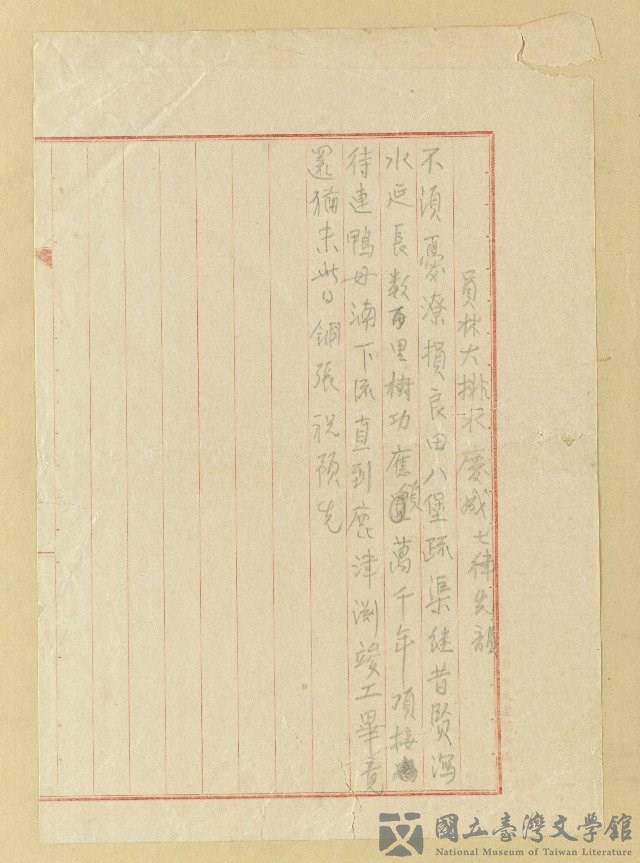 員林大排水慶成七律先韻
不須憂潦損良田八堡疏渠繼昔賢瀉
水延長数百里樹功應顯萬千年項接
待連鴨母湳下流直到鹿津測竣工畢竟
還猶未此日鋪張祝預先
國立臺灣文學館
National Museum of Taiwan Literature